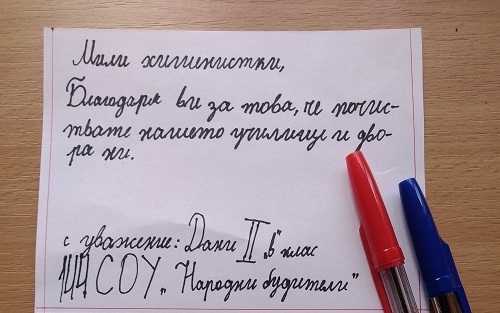 Мили хигиенистки,
Благодаря ви за това, че почис-
твате нашето училище и дво-
ра ни.
с уважение: Дани II „в" клас
144 СОУ „Народни будители"